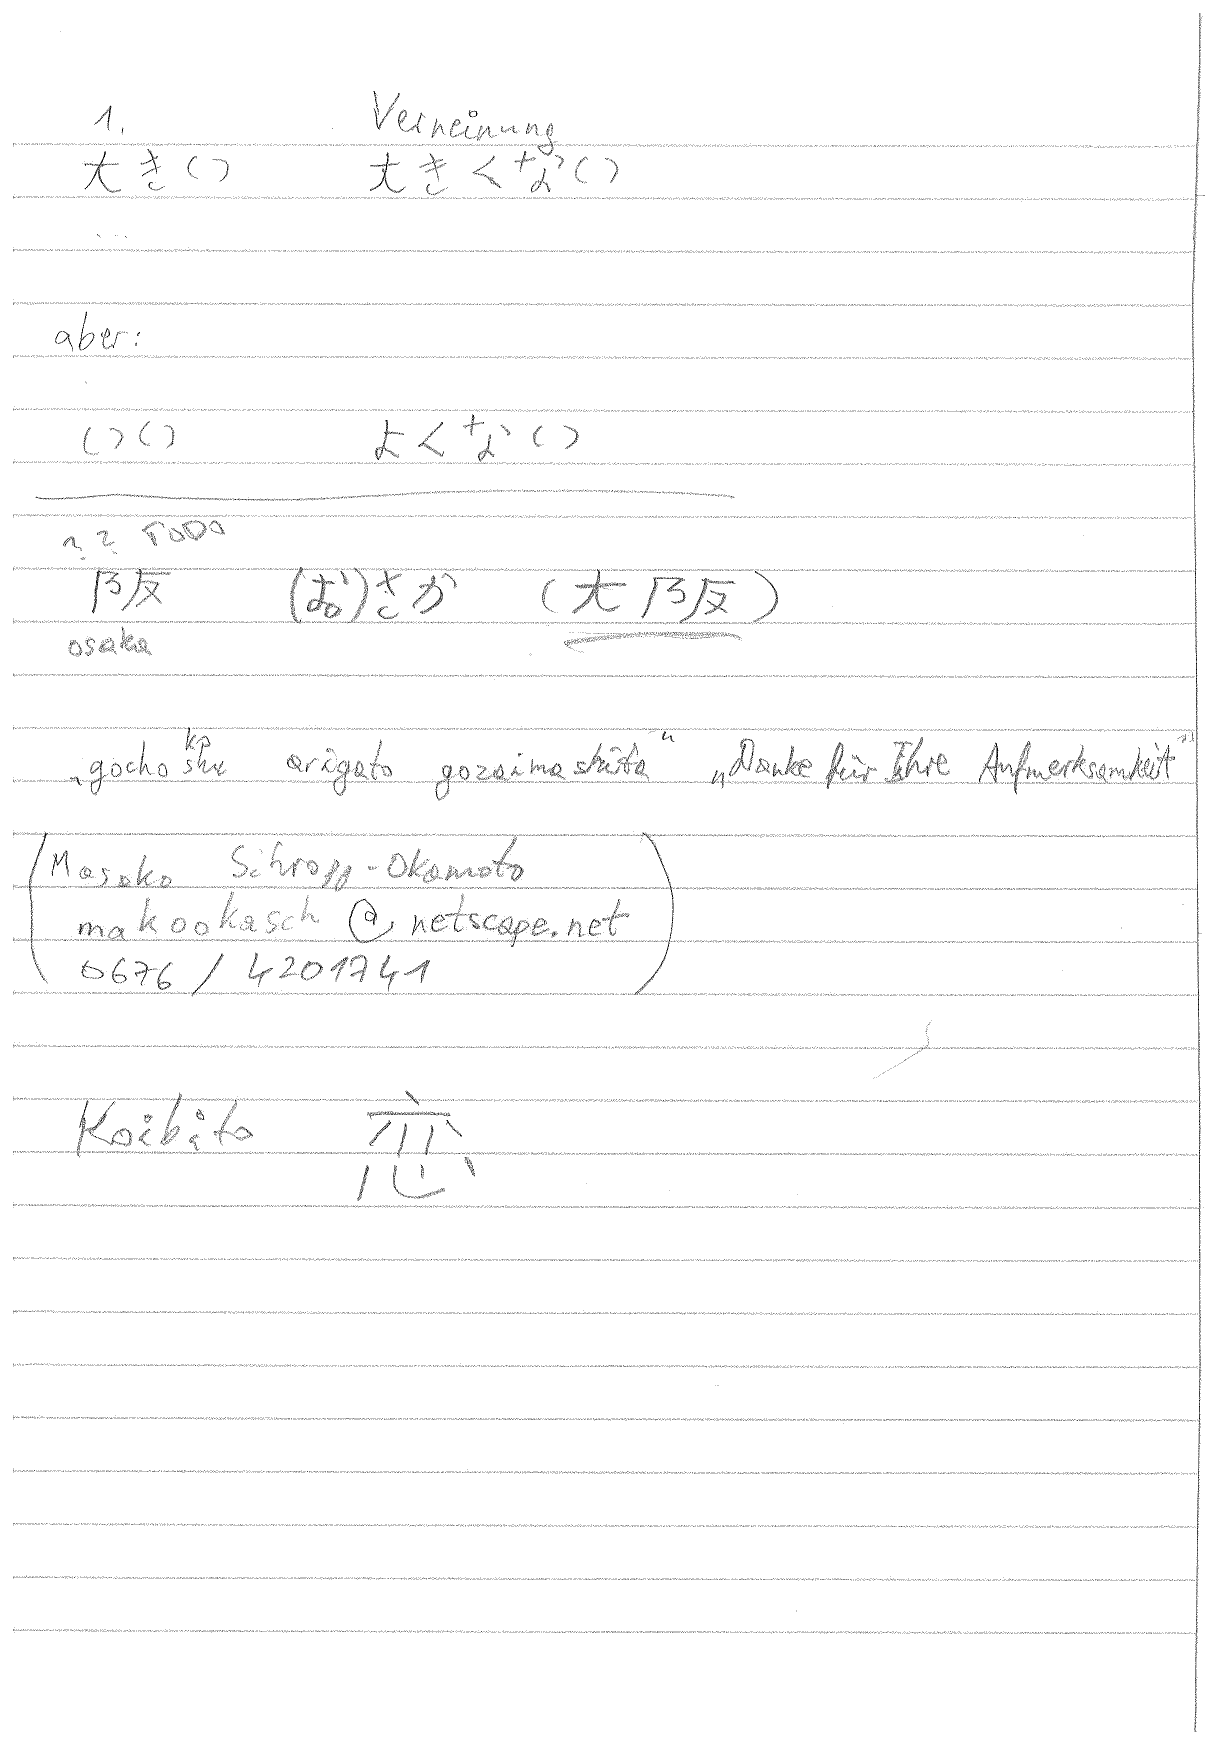 1. Verneinung
大きい 大きくない
...
aber:
いい よくない
?? TODO
阪 (お)さか (大阪)
osaka
kp
„gocho shu arigato gozaimashita“ „Danke für Ihre Aufmerksamkeit“
(Masako Schropp-Okamoto
makookasch@netscape.net
0676 / 4201741)
Koibito 恋